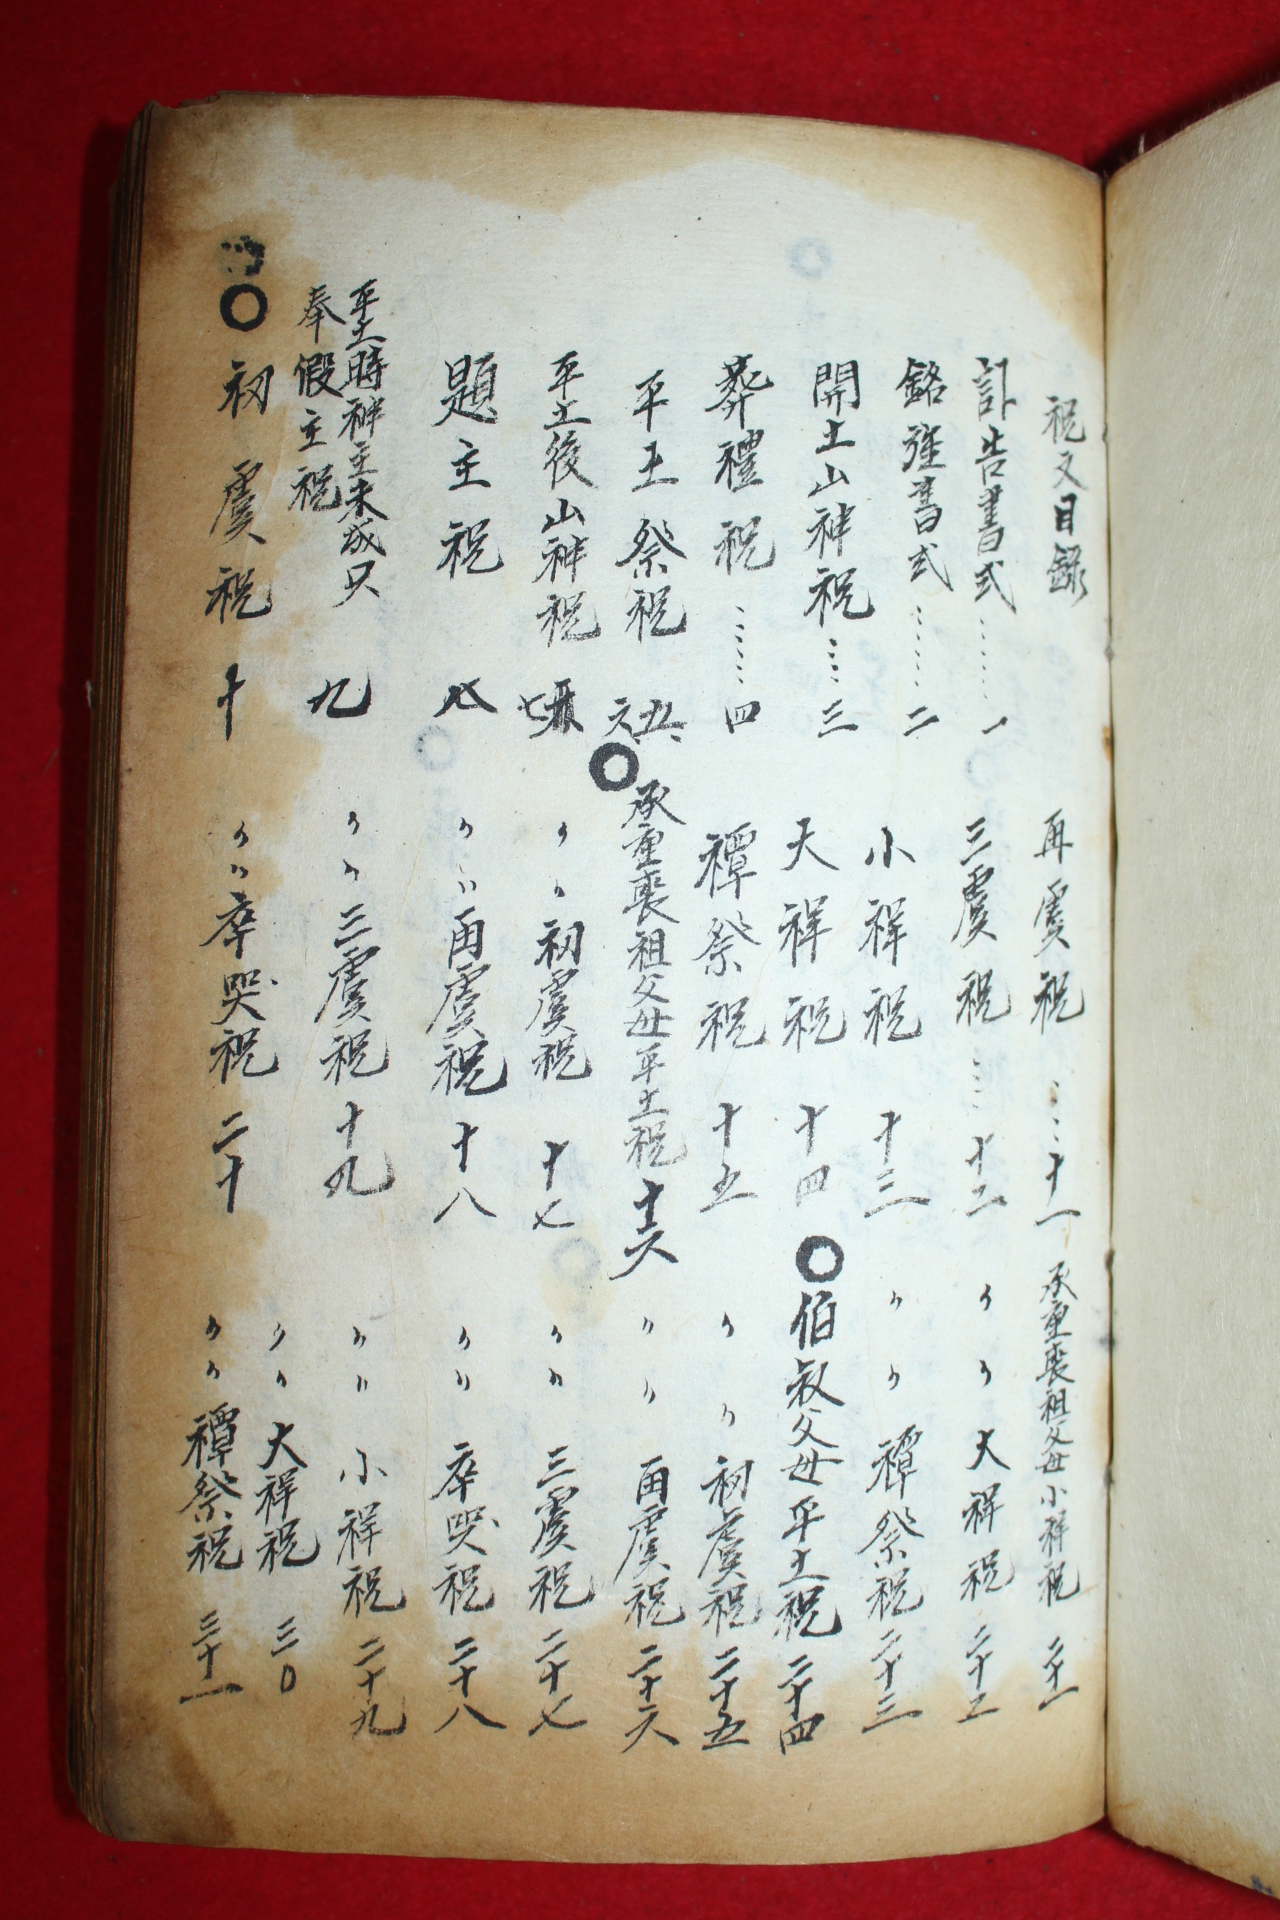 祝文目錄
訃告書式……一
銘旌書式……二
開土山神祝……三
葬禮祝……四
平土祭祝 五、六、
平土後山神祝 七
題主祝 八
平土時神主未成只
奉假主祝 九
○初虞祝 十
再虞祝……十一
三虞祝……十二
小祥祝 十三
大祥祝 十四
禫祭祝 十五
○承重喪祖父母平土祝 十六
〃〃初虞祝 十七
〃〃再虞祝 十八
〃〃三虞祝 十九
〃〃卒哭祝 二十
承重喪祖父母小祥祝 二十一
〃〃大祥祝 二十二
〃〃禫祭祝 二十三
○伯叔父母平土祝 二十四
〃〃初虞祝 二十五
〃〃再虞祝 二十六
〃〃三虞祝 二十七
〃〃卒哭祝 二十八
〃〃小祥祝 二十九
〃〃大祥祝 三〇
〃〃禫祭祝 三十一